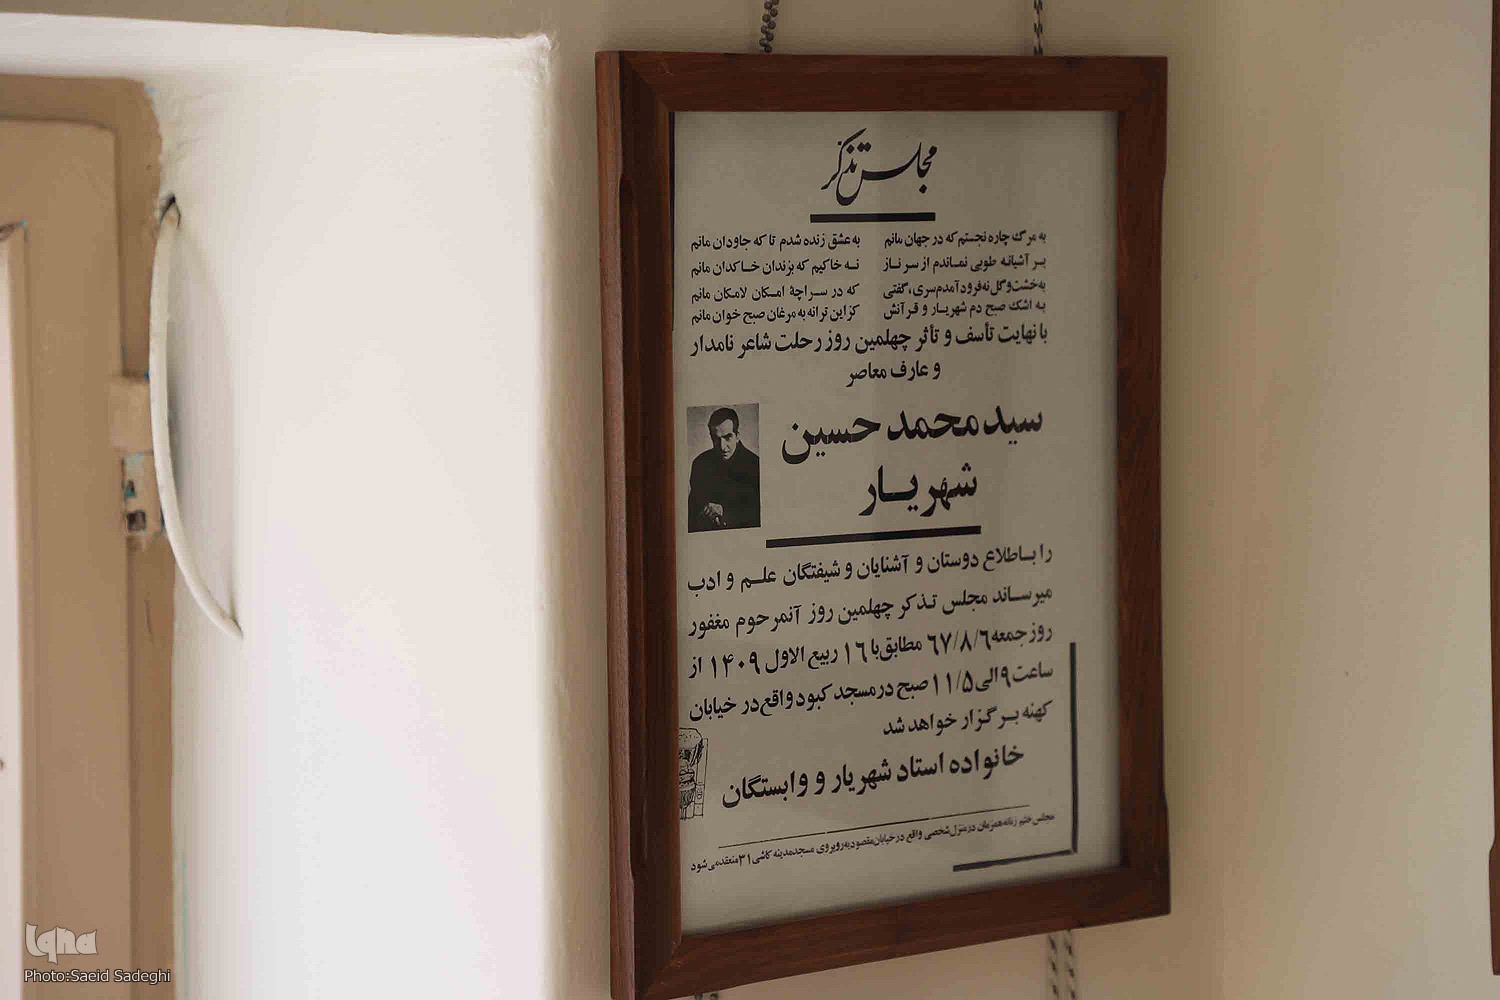 مجلس تذکر
به مرگ چاره نجستم که در جهان مانم
به عشق زنده شدم تا که جاودان مانم
بر آشیانه طوبی نماندم از سر ناز
نه خاکیم که بزندان خاکدان مانم
به خشت و گل نه فرود آمدم سری، گفتی
که در سراچهٔ امکان لامکان مانم
به اشک صبح دم شهریار و قرآنش
کز این ترانه به مرغان صبح خوان مانم
با نهایت تأسف و تأثر چهلمین روز رحلت شاعر نامدار
و عارف معاصر
سید محمد حسین
شهریار
را باطلاع دوستان و آشنایان و شیفتگان علم و ادب
میرساند مجلس تذکر چهلمین روز آنمرحوم مغفور
روز جمعه ۶۷/۸/۶ مطابق با ۱۶ ربیع الاول ۱۴۰۹ از
ساعت ۹ الی ۱۱/۵ صبح در مسجد کبود واقع در خیابان
کهنه برگزار خواهد شد
خانواده استاد شهریار و وابستگان
مجلس ختم زنانه همزمان در منزل شخصی واقع در خیابان مقصودیه روبروی مسجد مدینه کاشی ۳۱ منعقد می شود
Iqna
Photo:Saeid Sadeghi